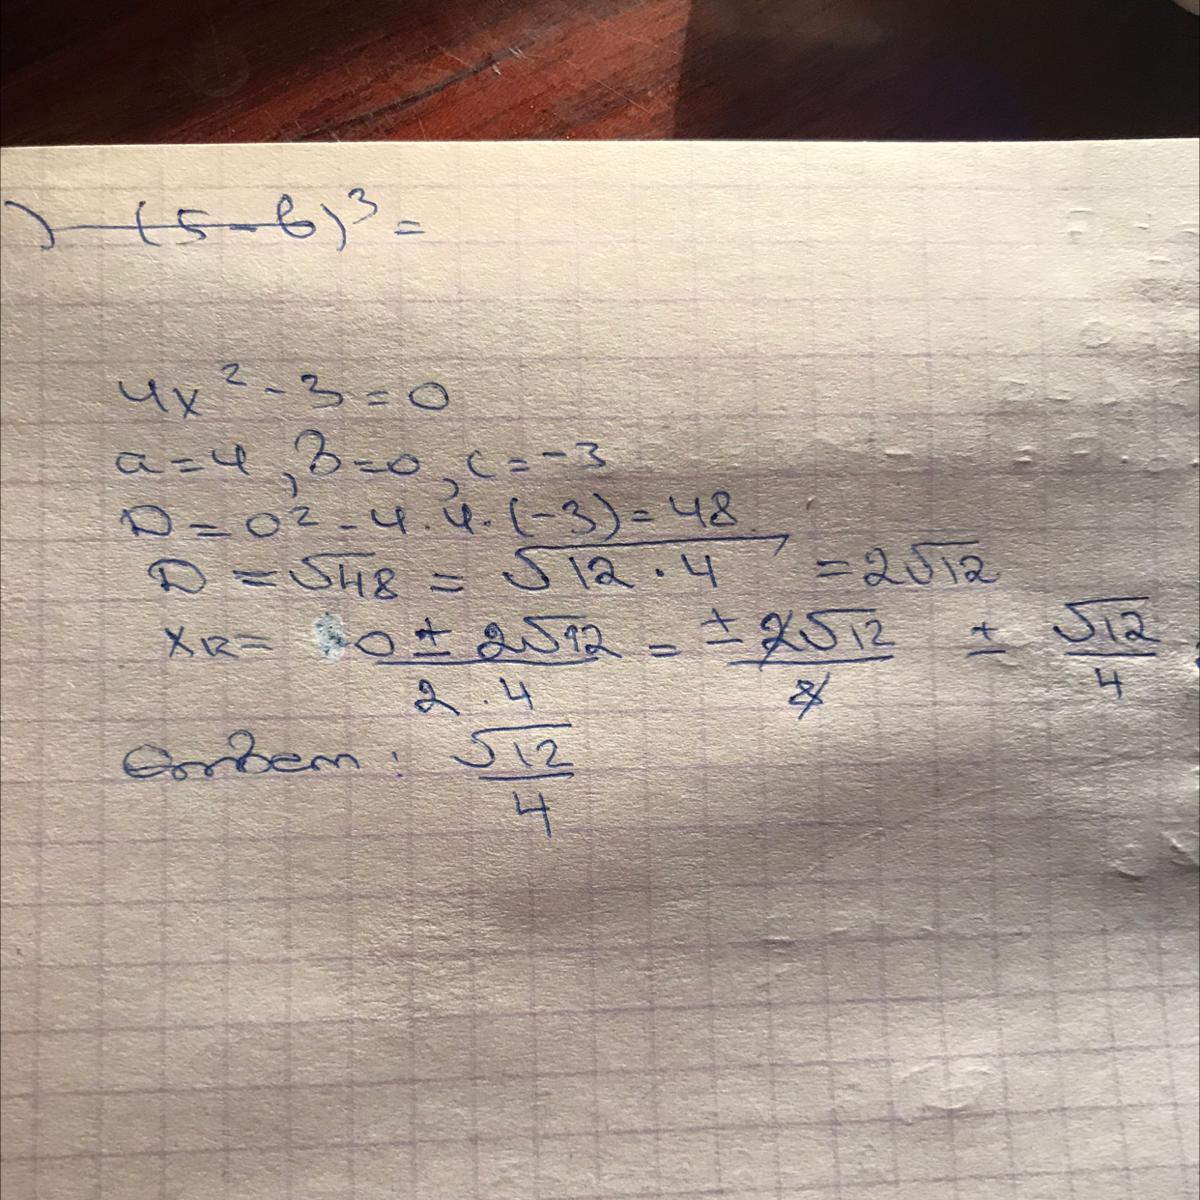 ) (5-б)³ =
4x² - 3 = 0
a = 4, B = 0, c = -3
D = 0² - 4 · 4 · (-3) = 48
D = √48 = √12 · 4 = 2√12
x₁₂ = 0 ± 2√12 / 2 · 4 = ± 2√12 / 8 ± √12 / 4
Ответ: √12 / 4